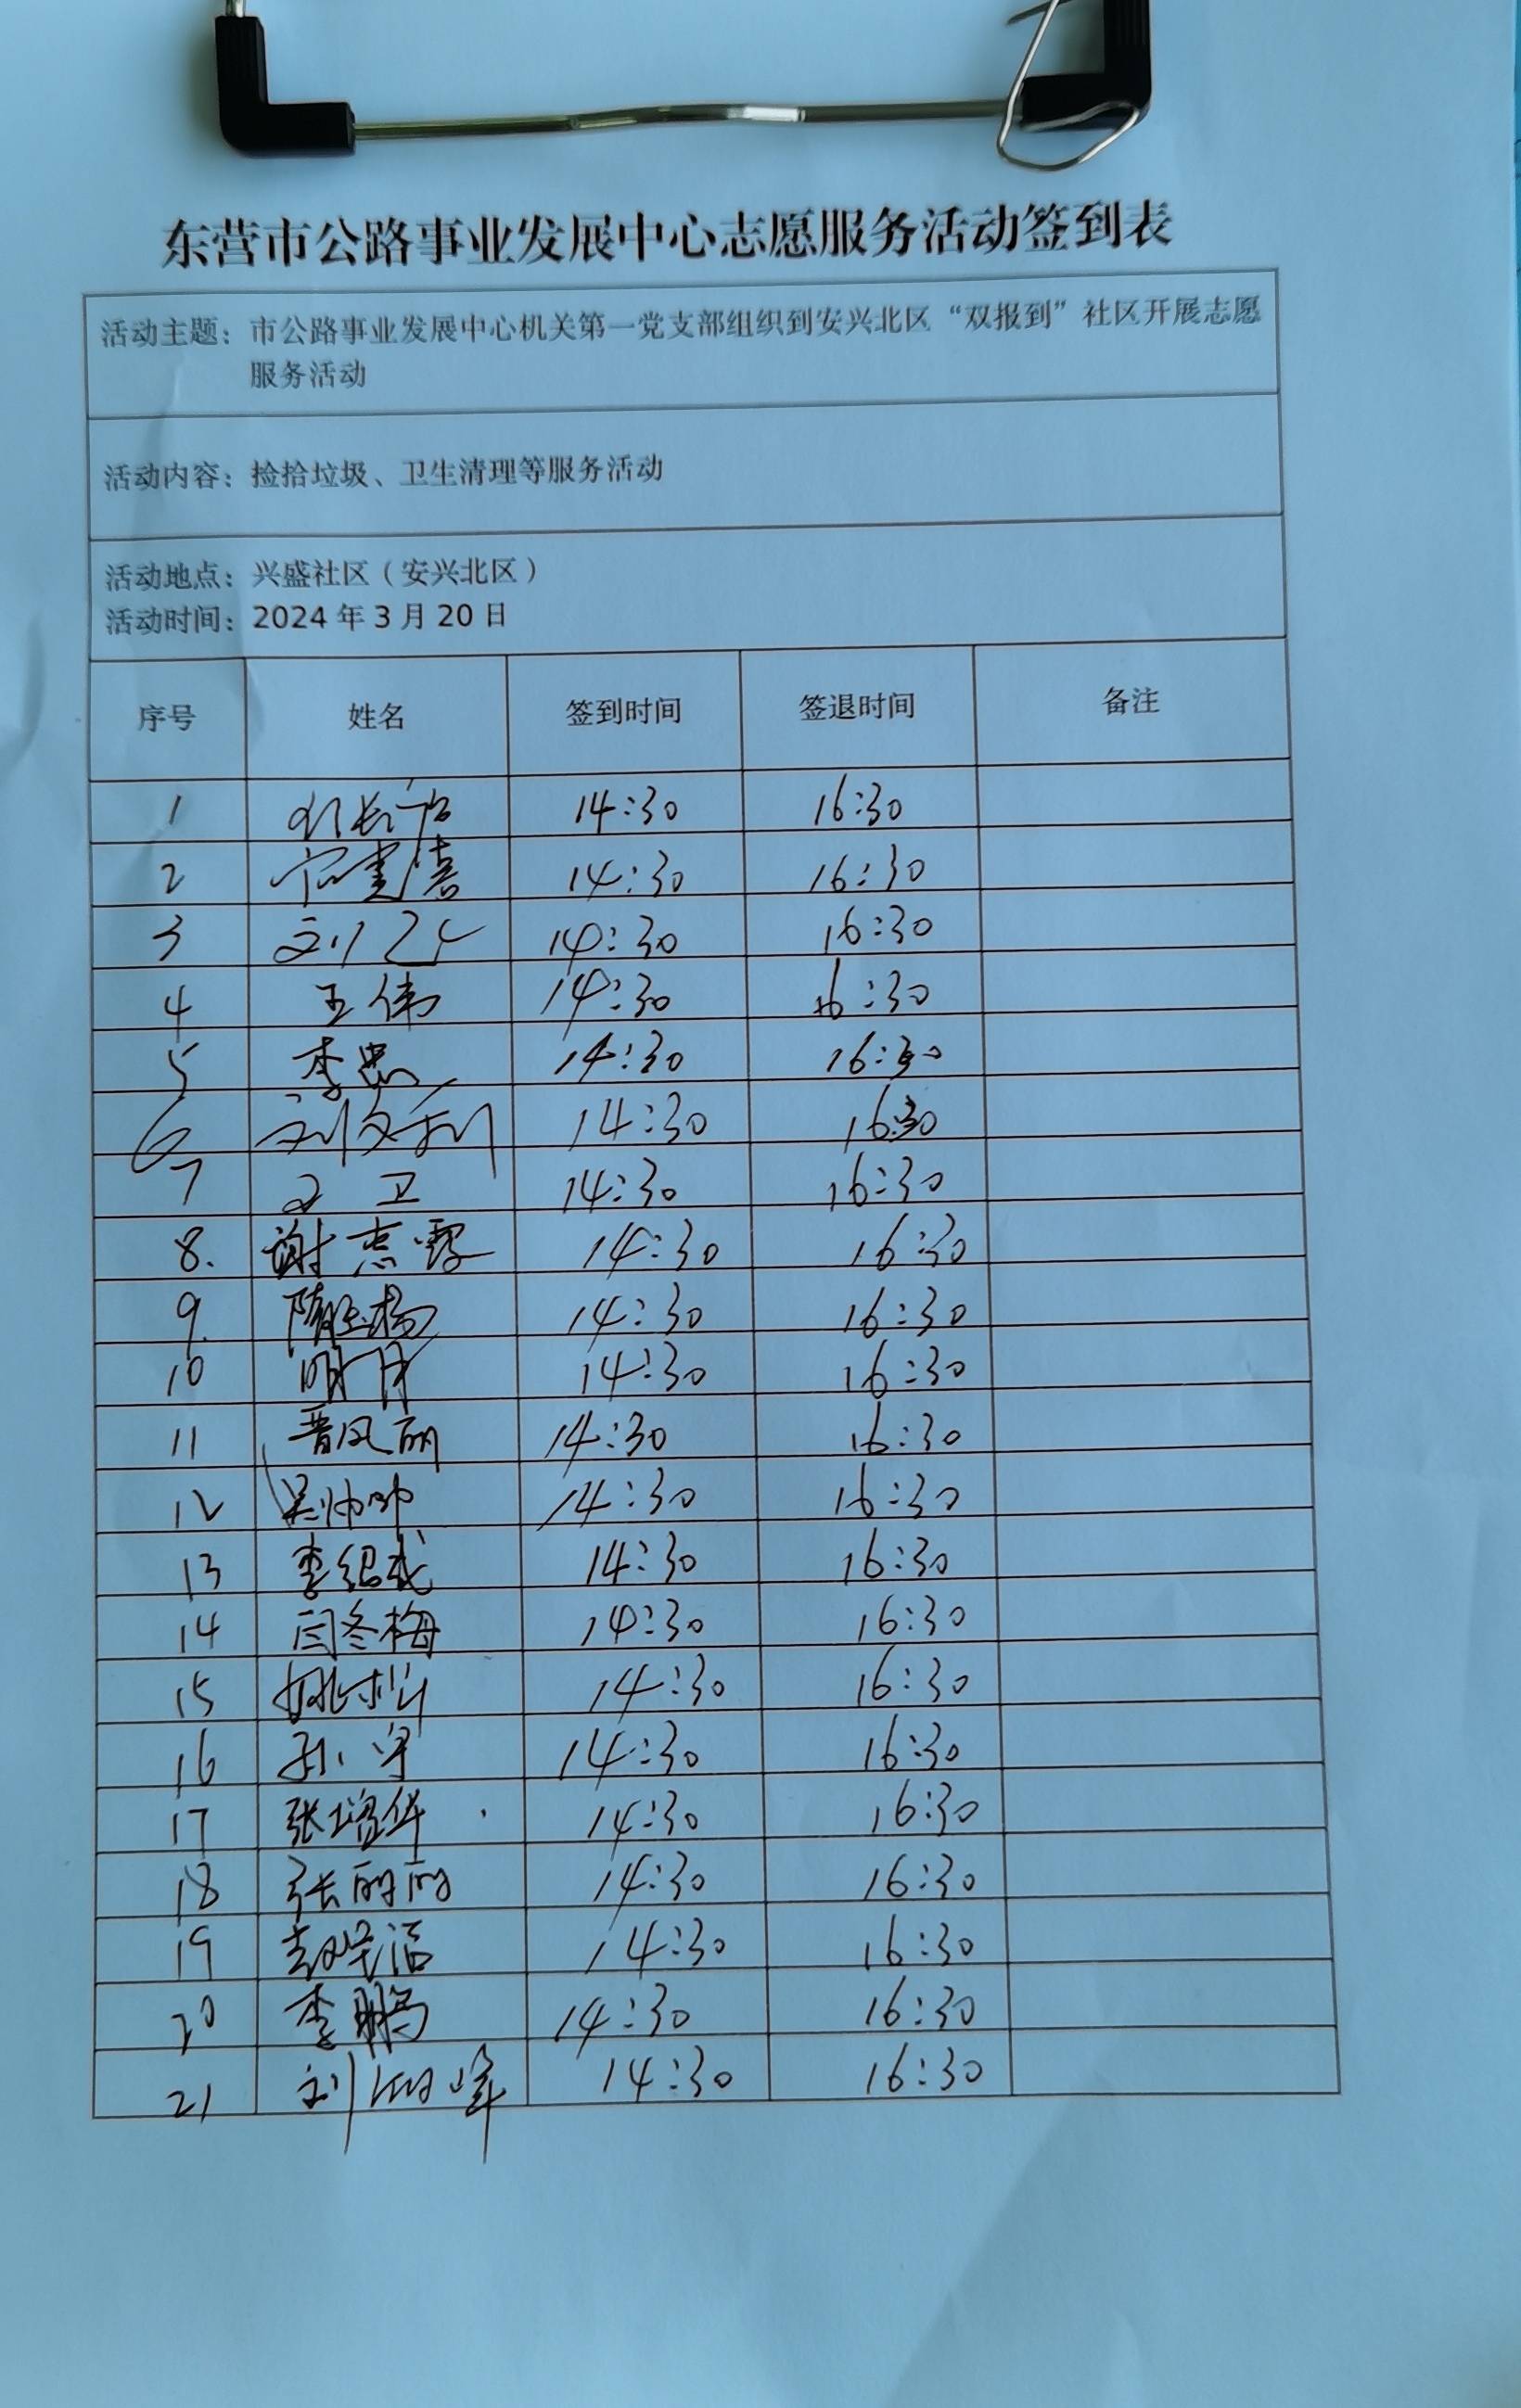 东营市公路事业发展中心志愿服务活动签到表
活动主题：市公路事业发展中心机关第一党支部组织到安兴北区“双报到”社区开展志愿
服务活动
活动内容：捡拾垃圾、卫生清理等服务活动
活动地点：兴盛社区（安兴北区）
活动时间：2024年3月20日
序号 姓名 签到时间 签退时间 备注
1 14:30 16:30
2 14:30 16:30
3 刘 14:30 16:30
4 王伟 14:30 16:30
5 李忠 14:30 16:30
6 刘文利 14:30 16:30
7 卫 14:30 16:30
8. 谢志霞 14:30 16:30
9. 隋 14:30 16:30
10 明月 14:30 16:30
11 晋凤丽 14:30 16:30
12 吴帅帅 14:30 16:30
13 李绍武 14:30 16:30
14 闫冬梅 14:30 16:30
15 姚松 14:30 16:30
16 孙宁 14:30 16:30
17 张增华 14:30 16:30
18 张丽丽 14:30 16:30
19 赵 14:30 16:30
20 李鹏 14:30 16:30
21 刘 峰 14:30 16:30